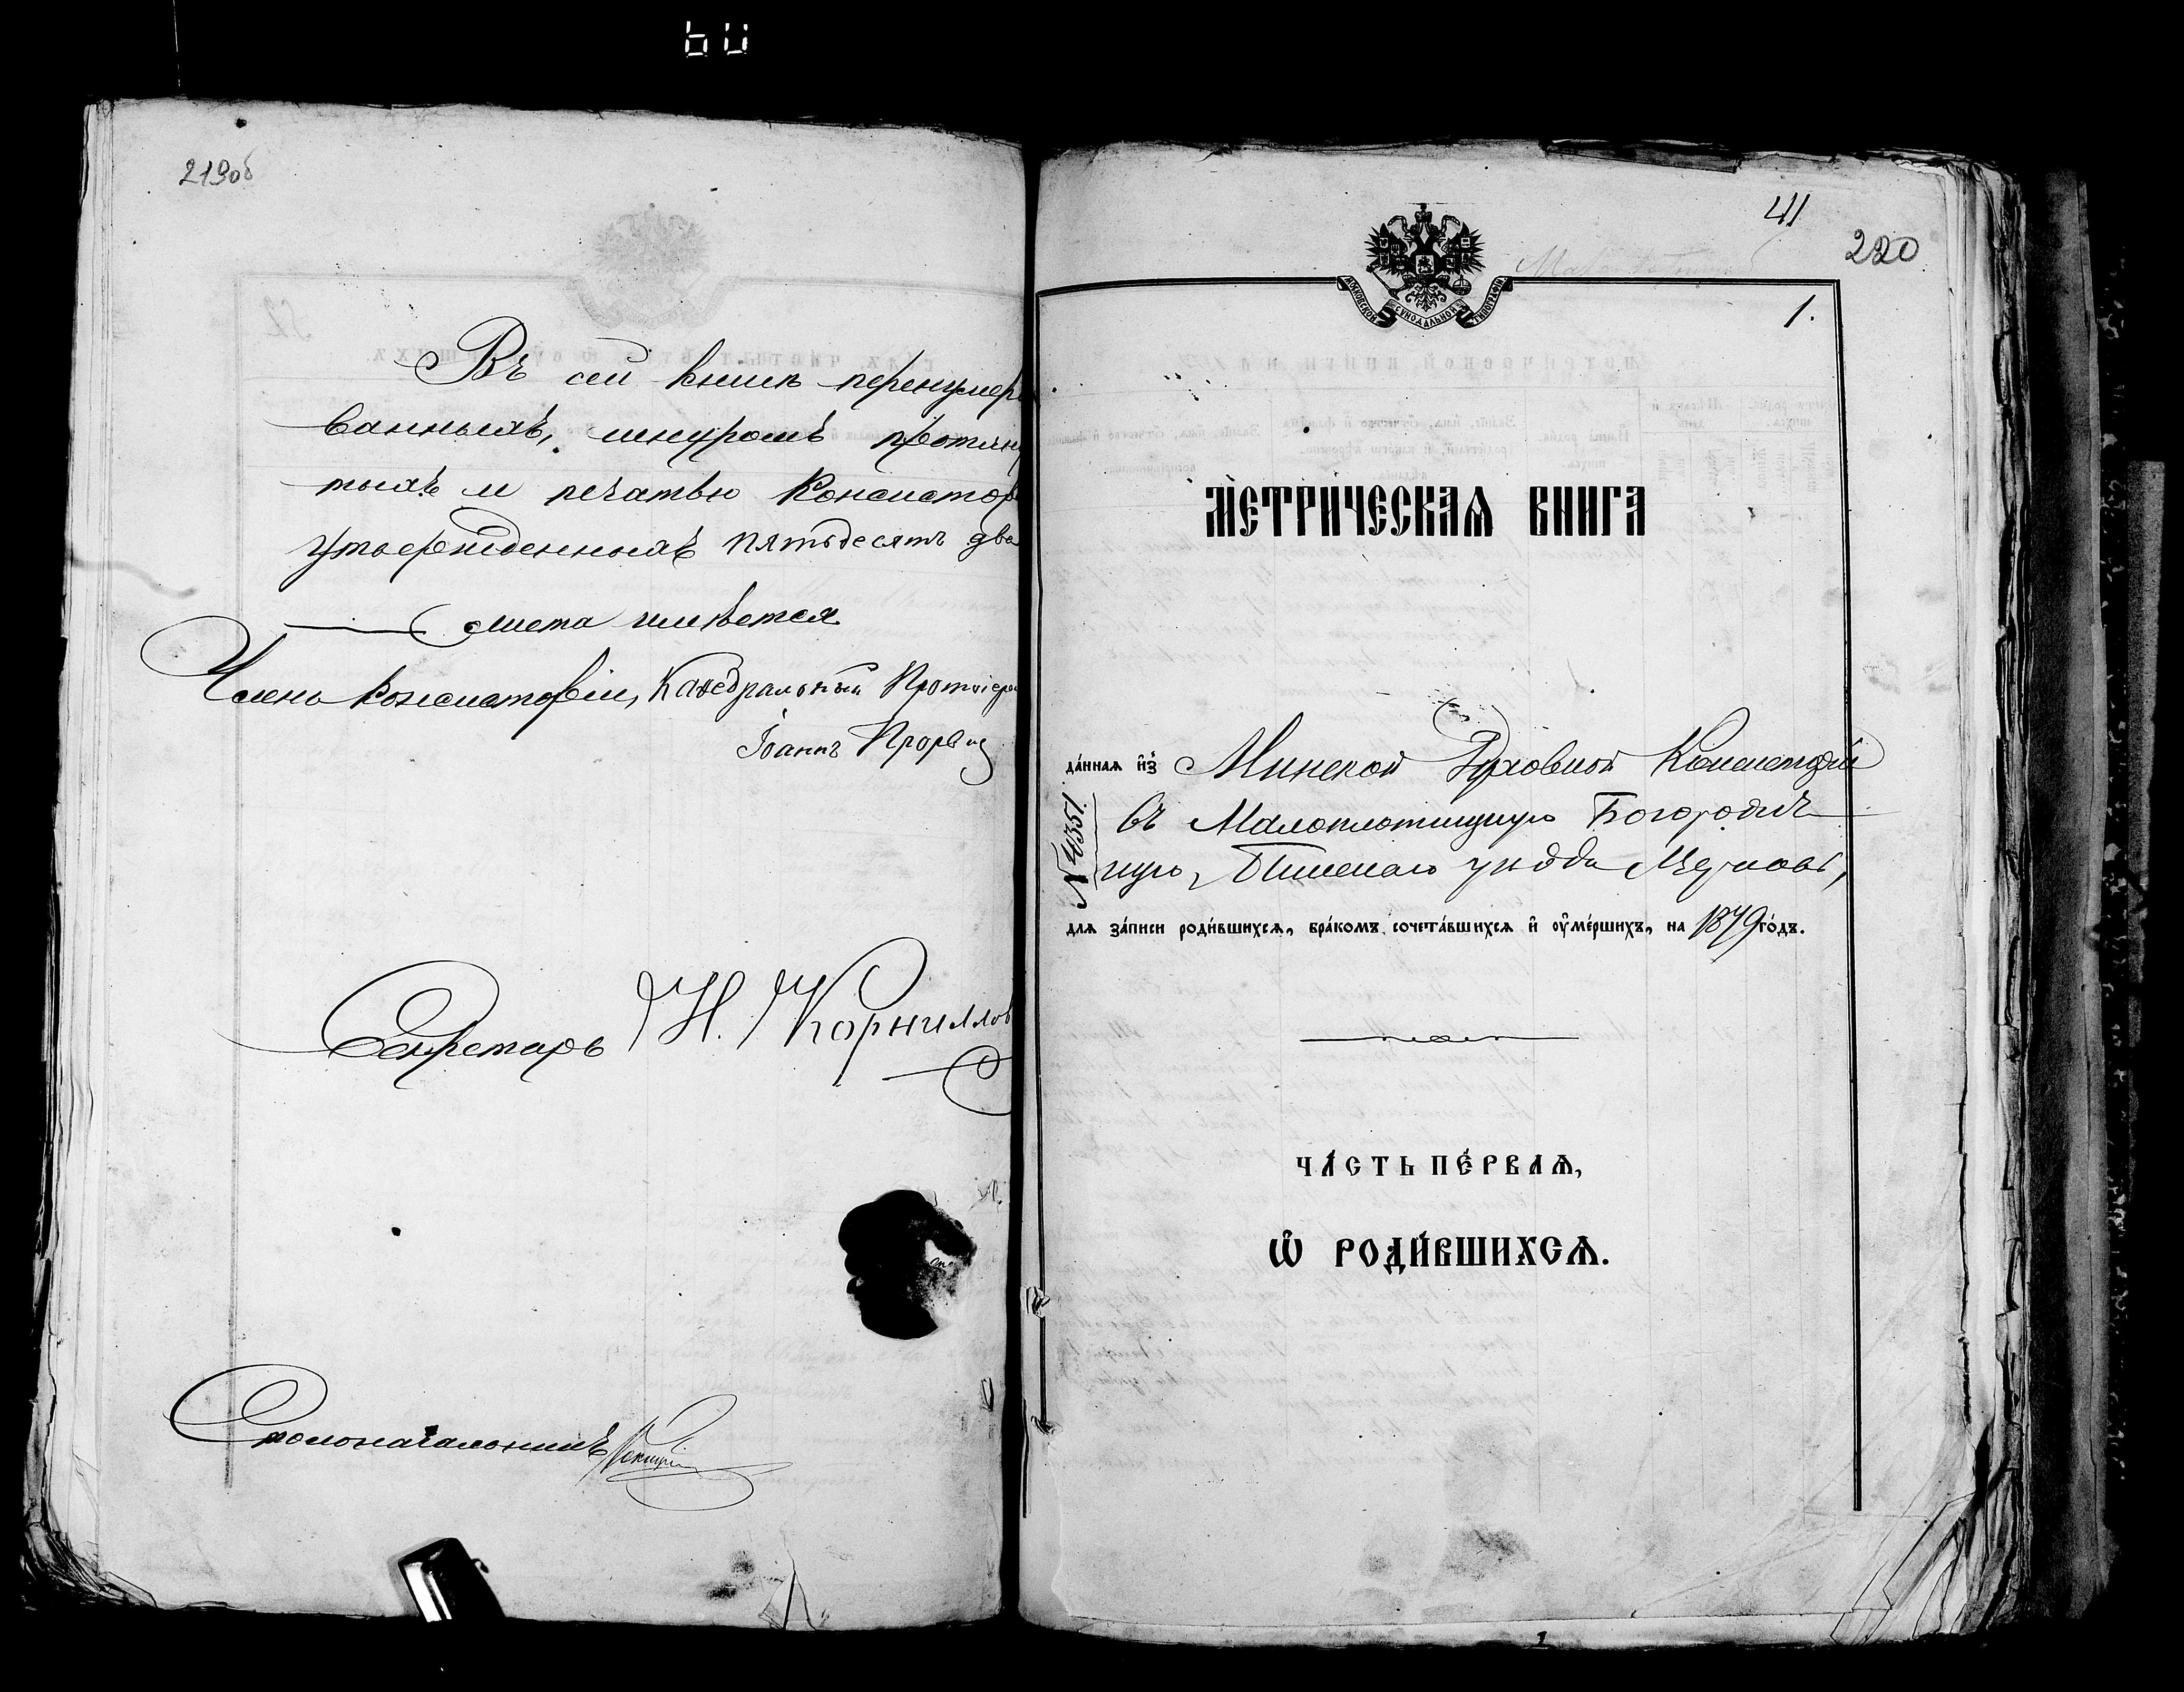 219об
Въ сей книгѣ перенумеро
ванныхъ, шнуромъ протяну
тыхъ и печатью Консистор
утвержденныхъ пятьдесятъ два
листа имѣется
Членъ Консисторіи, Каѳедральный Протоіерей
Іоаннъ
Секретарь Н. Корнилов
Столоначальникъ
41
220
МОСКОВСКОЙ СѴНОДАЛЬНОЙ ТИПОГРАФІИ
1.
МЕТРИ́ЧЕСКАѦ КНИГА
да́ннаѧ и҆з̾ Минской Духовной Консисторіи
въ Малоплотницкую Богородич
ную, Пинскаго уѣзда Церковь,
№ 4351.
длѧ за́писи роди́вшихсѧ, бра́комъ сочета́вшихсѧ и҆ оу҆ме́ршихъ, на 1879 го́дъ.
ЧА́СТЬ ПЕ́РВАѦ,
Ѡ҆ РОДИ́ВШИХСѦ.
1